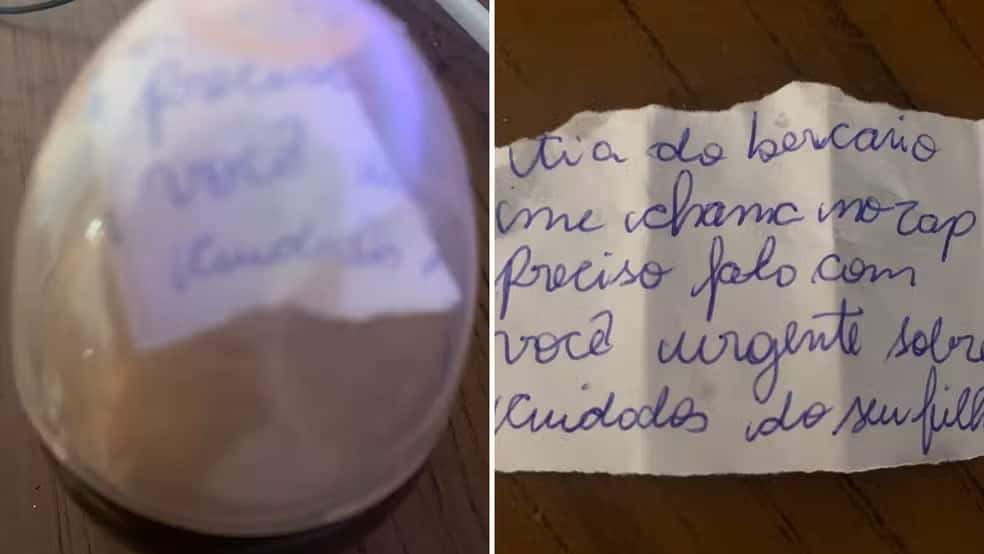 você
cuidados
tia do bercario
me chama no zap
preciso falo com
você urgente sobre
cuidados do seu filh